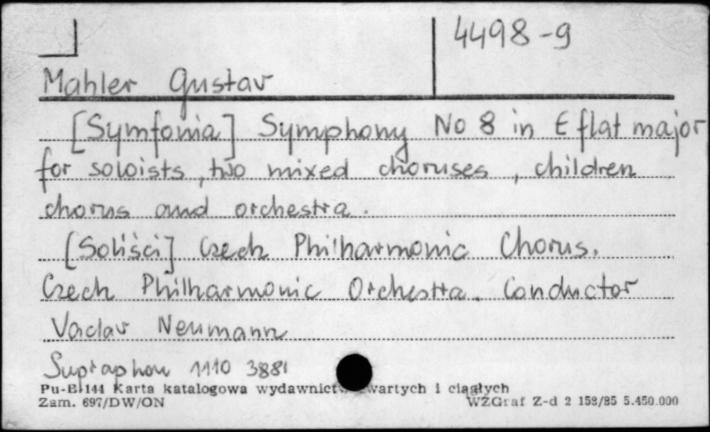 4498-9
Mahler Gustav
[Symfonia] Symphony No 8 in E flat major
for soloists, two mixed choruses, children
chorus and orchestra.
[Soliści] Czech Philharmonic Chorus.
Czech Philharmonic Orchestra. Conductor
Vaclav Neumann
Supraphon 1110 3881
Pu-B/144 Karta katalogowa wydawnict wartych i ciągłych
Zam. 697/DW/ON WZGraf Z-d 2 158/85 5.450.000